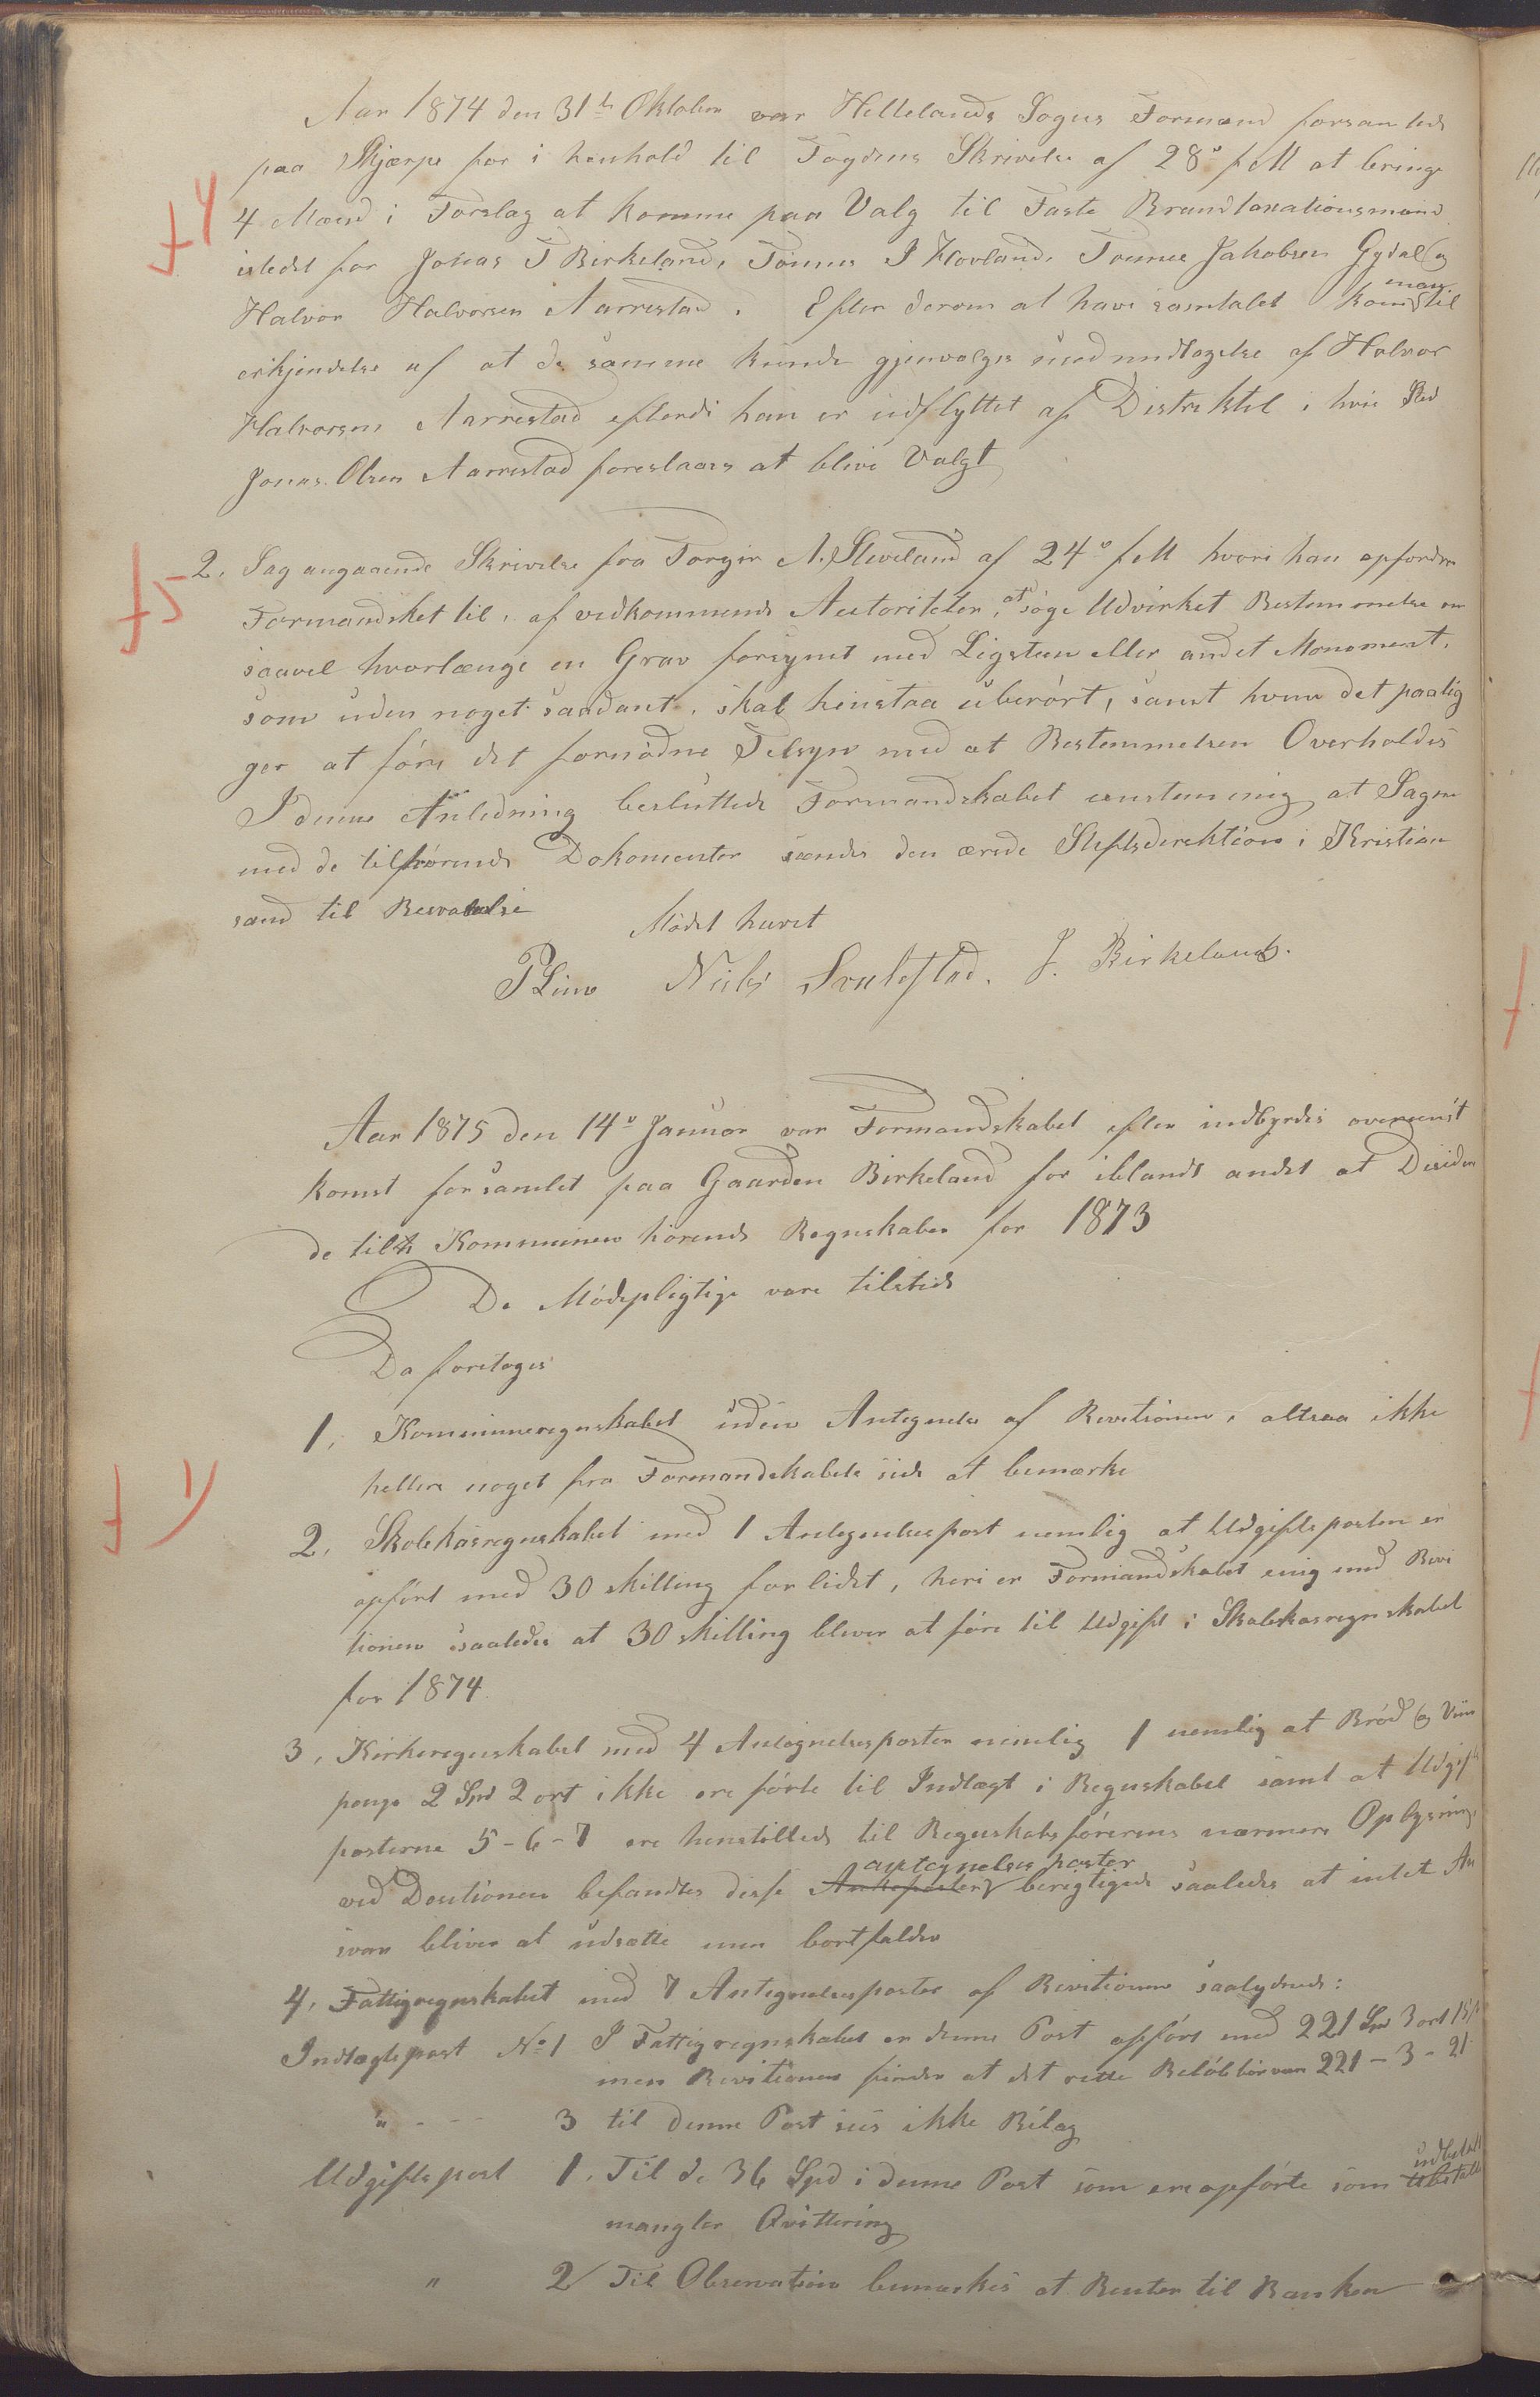 Aar 1874 den 31te Oktober var Hellelands Sogns Formænd forsamlede
paa Skjærpe for i henhold til Fogdens Skrivelse af 28de f M at bringe
4 Mænd i Forslag at komme paa Valg til Faste Brandtaxationsmænd
istedet for Jonas T Birkeland, Tönnes I Hovland, Tönnes Jakobsen Gydal og
Halvor Halvorsen Aarrestad. Efter derom at have samtalet kom man til
erkjendelse af at de samme kunde gjenvælges med undtagelse af Halvor
Halvorsen Aarrestad efterdi han er udflyttet af Distriktet i hvis Sted
Jonas Olsen Aarrestad foreslaaes at blive Valgt
f 4
2, Sag angaaende Skrivelse fra Torger A. Sleveland af 24de f M hvori han opfordrer
f 5
Formandsket til, af vedkommende Autoriteter, at söge Udvirket Bestemmelse om
saavel hvorlænge en Grav forsynet med Ligsteen eller andet Monoment,
som uden noget saadant, skal henstaa uberört, samt hvem det paalig
ger at före det fornödne Tilsyn med at Bestemmelsen Overholdes
I denne Anledning besluttede Formandskabet eenstemmig at Sagen
med de tilhörende Dokomenter sendes den ærede Stiftsdirektion i Kristian
sand til Besvarelse
Mödet hævet
P Lima Niels Svalestad. J. Birkeland.
Aar 1875 den 14de Januar var Formandskabet efter indbyrdes overeenst
komst forsamlet paa Gaarden Birkeland for iblandt andet at Desidere
de till Kommunen hörende Regnskaber for 1873
De Mödepligtige vare tilstede
Da foretoges
1, Kommuneregnskabet uden Antegnelse af Revitionen, altsaa ikke
heller noget fra Formandskabets side at bemærke
f 1)
2, Skolekasregnskabet med 1 Antegnelsespost nemlig at Udgiftsposten er
opfört med 30 skilling for lidet, heri er Formandskabet enig med Revi
tionen saaledes at 30 skilling bliver at före til Udgift i Skolekasregnskabet
for 1874.
3, Kirkeregnskabet med 4 Antegnelsesposter nemlig 1 nemlig at Bröd og Viin
penge 2 Spd 2 ort ikke ere förte til Indtægt i Regnskabet samt at Udgifts
posterne 5-6-7 ere henstillede til Regnskabsförerens nærmere Oplysning,
ved Desitionen befandtes disse antegnelses poster berigtigede saaledes at intet An
svar bliver at udsætte men bortfalder
4, Fattigregnskabet med 7 Antegnelsesposter af Revitionen saalydende:
Indtægtspost No 1 I Fattigregnskabet er denne Post opfört med 221 Spd 3 ort 15 s
men Revitionen finder at det rette Belöb bör vær 221 - 3 - 21
" - - - 3 til denne Post sees ikke Bilag
Udgiftspost 1, Til de 36 Spd i denne Post som ere opförte som udbetalt
mangler Qvittering
" 2 Til Observation bemærkes at Renter til Banken